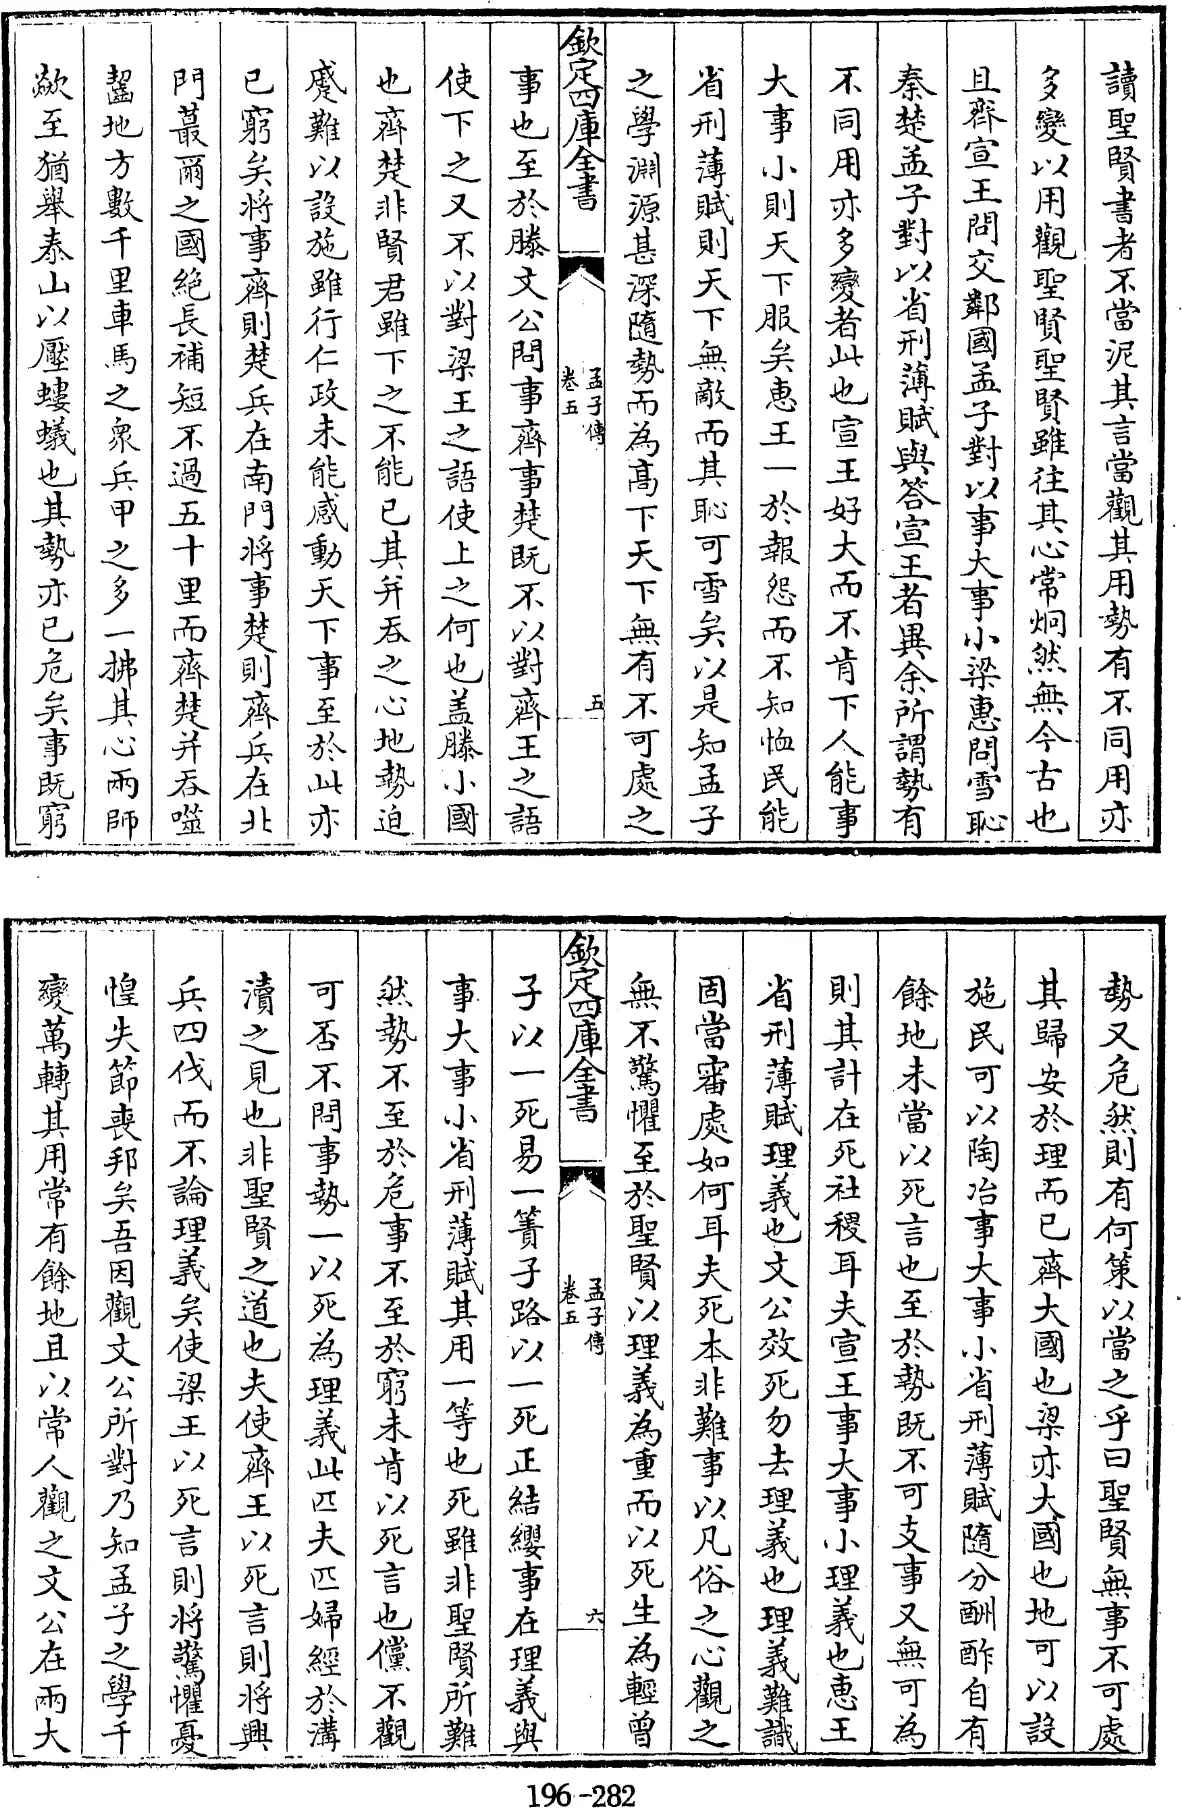 讀聖賢書者不當泥其言當觀其用勢有不同用亦
多變以用觀聖賢聖賢雖往其心常炯然無今古也
且齊宣王問交鄰國孟子對以事大事小梁惠問雪恥
秦楚孟子對以省刑薄賦與答宣王者異余所謂勢有
不同用亦多變者此也宣王好大而不肯下人能事
大事小則天下服矣惠王一於報怨而不知恤民能
省刑薄賦則天下無敵而其恥可雪矣以是知孟子
之學淵源甚深隨勢而為高下天下無有不可處之
欽定四庫全書
孟子傳
卷五
五
事也至於滕文公問事齊事楚既不以對齊王之語
使下之又不以對梁王之語使上之何也蓋滕小國
也齊楚非賢君雖下之不能已其并吞之心地勢迫
蹙難以設施雖行仁政未能感動天下事至於此亦
已窮矣將事齊則楚兵在南門將事楚則齊兵在北
門蕞爾之國絕長補短不過五十里而齊楚并吞噬
齧地方數千里車馬之衆兵甲之多一拂其心兩師
歘至猶舉泰山以壓螻蟻也其勢亦已危矣事既窮
勢又危然則有何策以當之乎曰聖賢無事不可處
其歸安於理而已齊大國也梁亦大國也地可以設
施民可以陶冶事大事小省刑薄賦隨分酬酢自有
餘地未當以死言也至於勢既不可支事又無可為
則其計在死社稷耳夫宣王事大事小理義也惠王
省刑薄賦理義也文公效死勿去理義也理義難識
固當審處如何耳夫死本非難事以凡俗之心觀之
無不驚懼至於聖賢以理義為重而以死生為輕曾
欽定四庫全書
孟子傳
卷五
六
子以一死易一簀子路以一死正結纓事在理義與
事大事小省刑薄賦其用一等也死雖非聖賢所難
然勢不至於危事不至於窮未肯以死言也儻不觀
可否不問事勢一以死為理義此匹夫匹婦經於溝
瀆之見也非聖賢之道也夫使齊王以死言則將興
兵四伐而不論理義矣使梁王以死言則將驚懼憂
惶失節喪邦矣吾因觀文公所對乃知孟子之學千
變萬轉其用常有餘地且以常人觀之文公在兩大
196-282